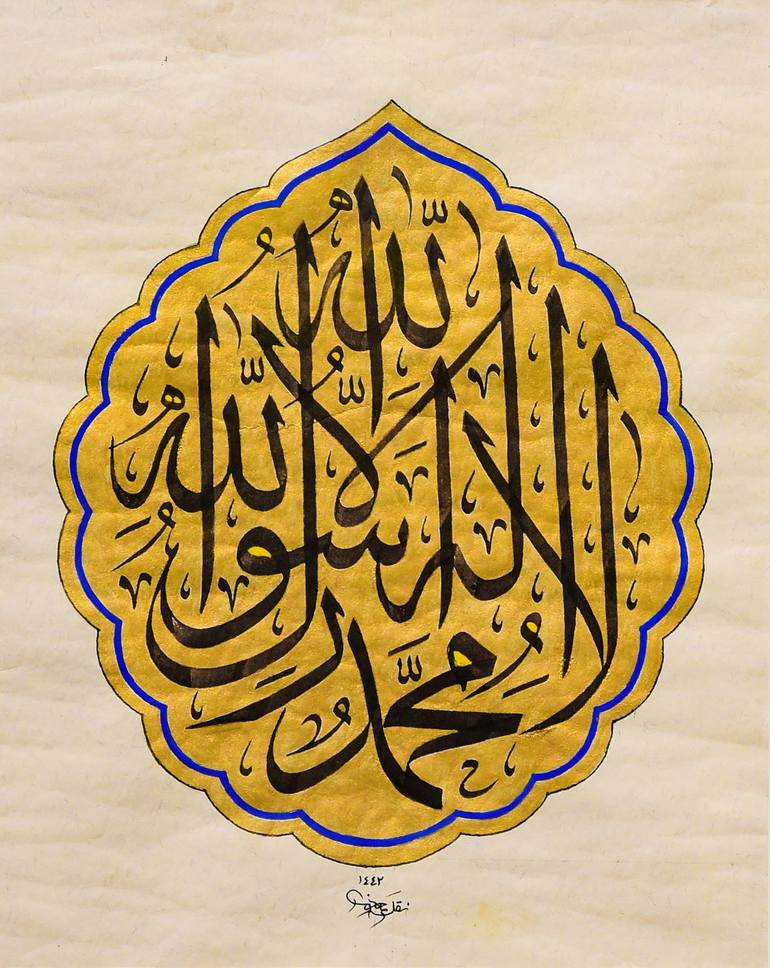 لا إله إلا الله محمد رسول الله
١٤٤٢